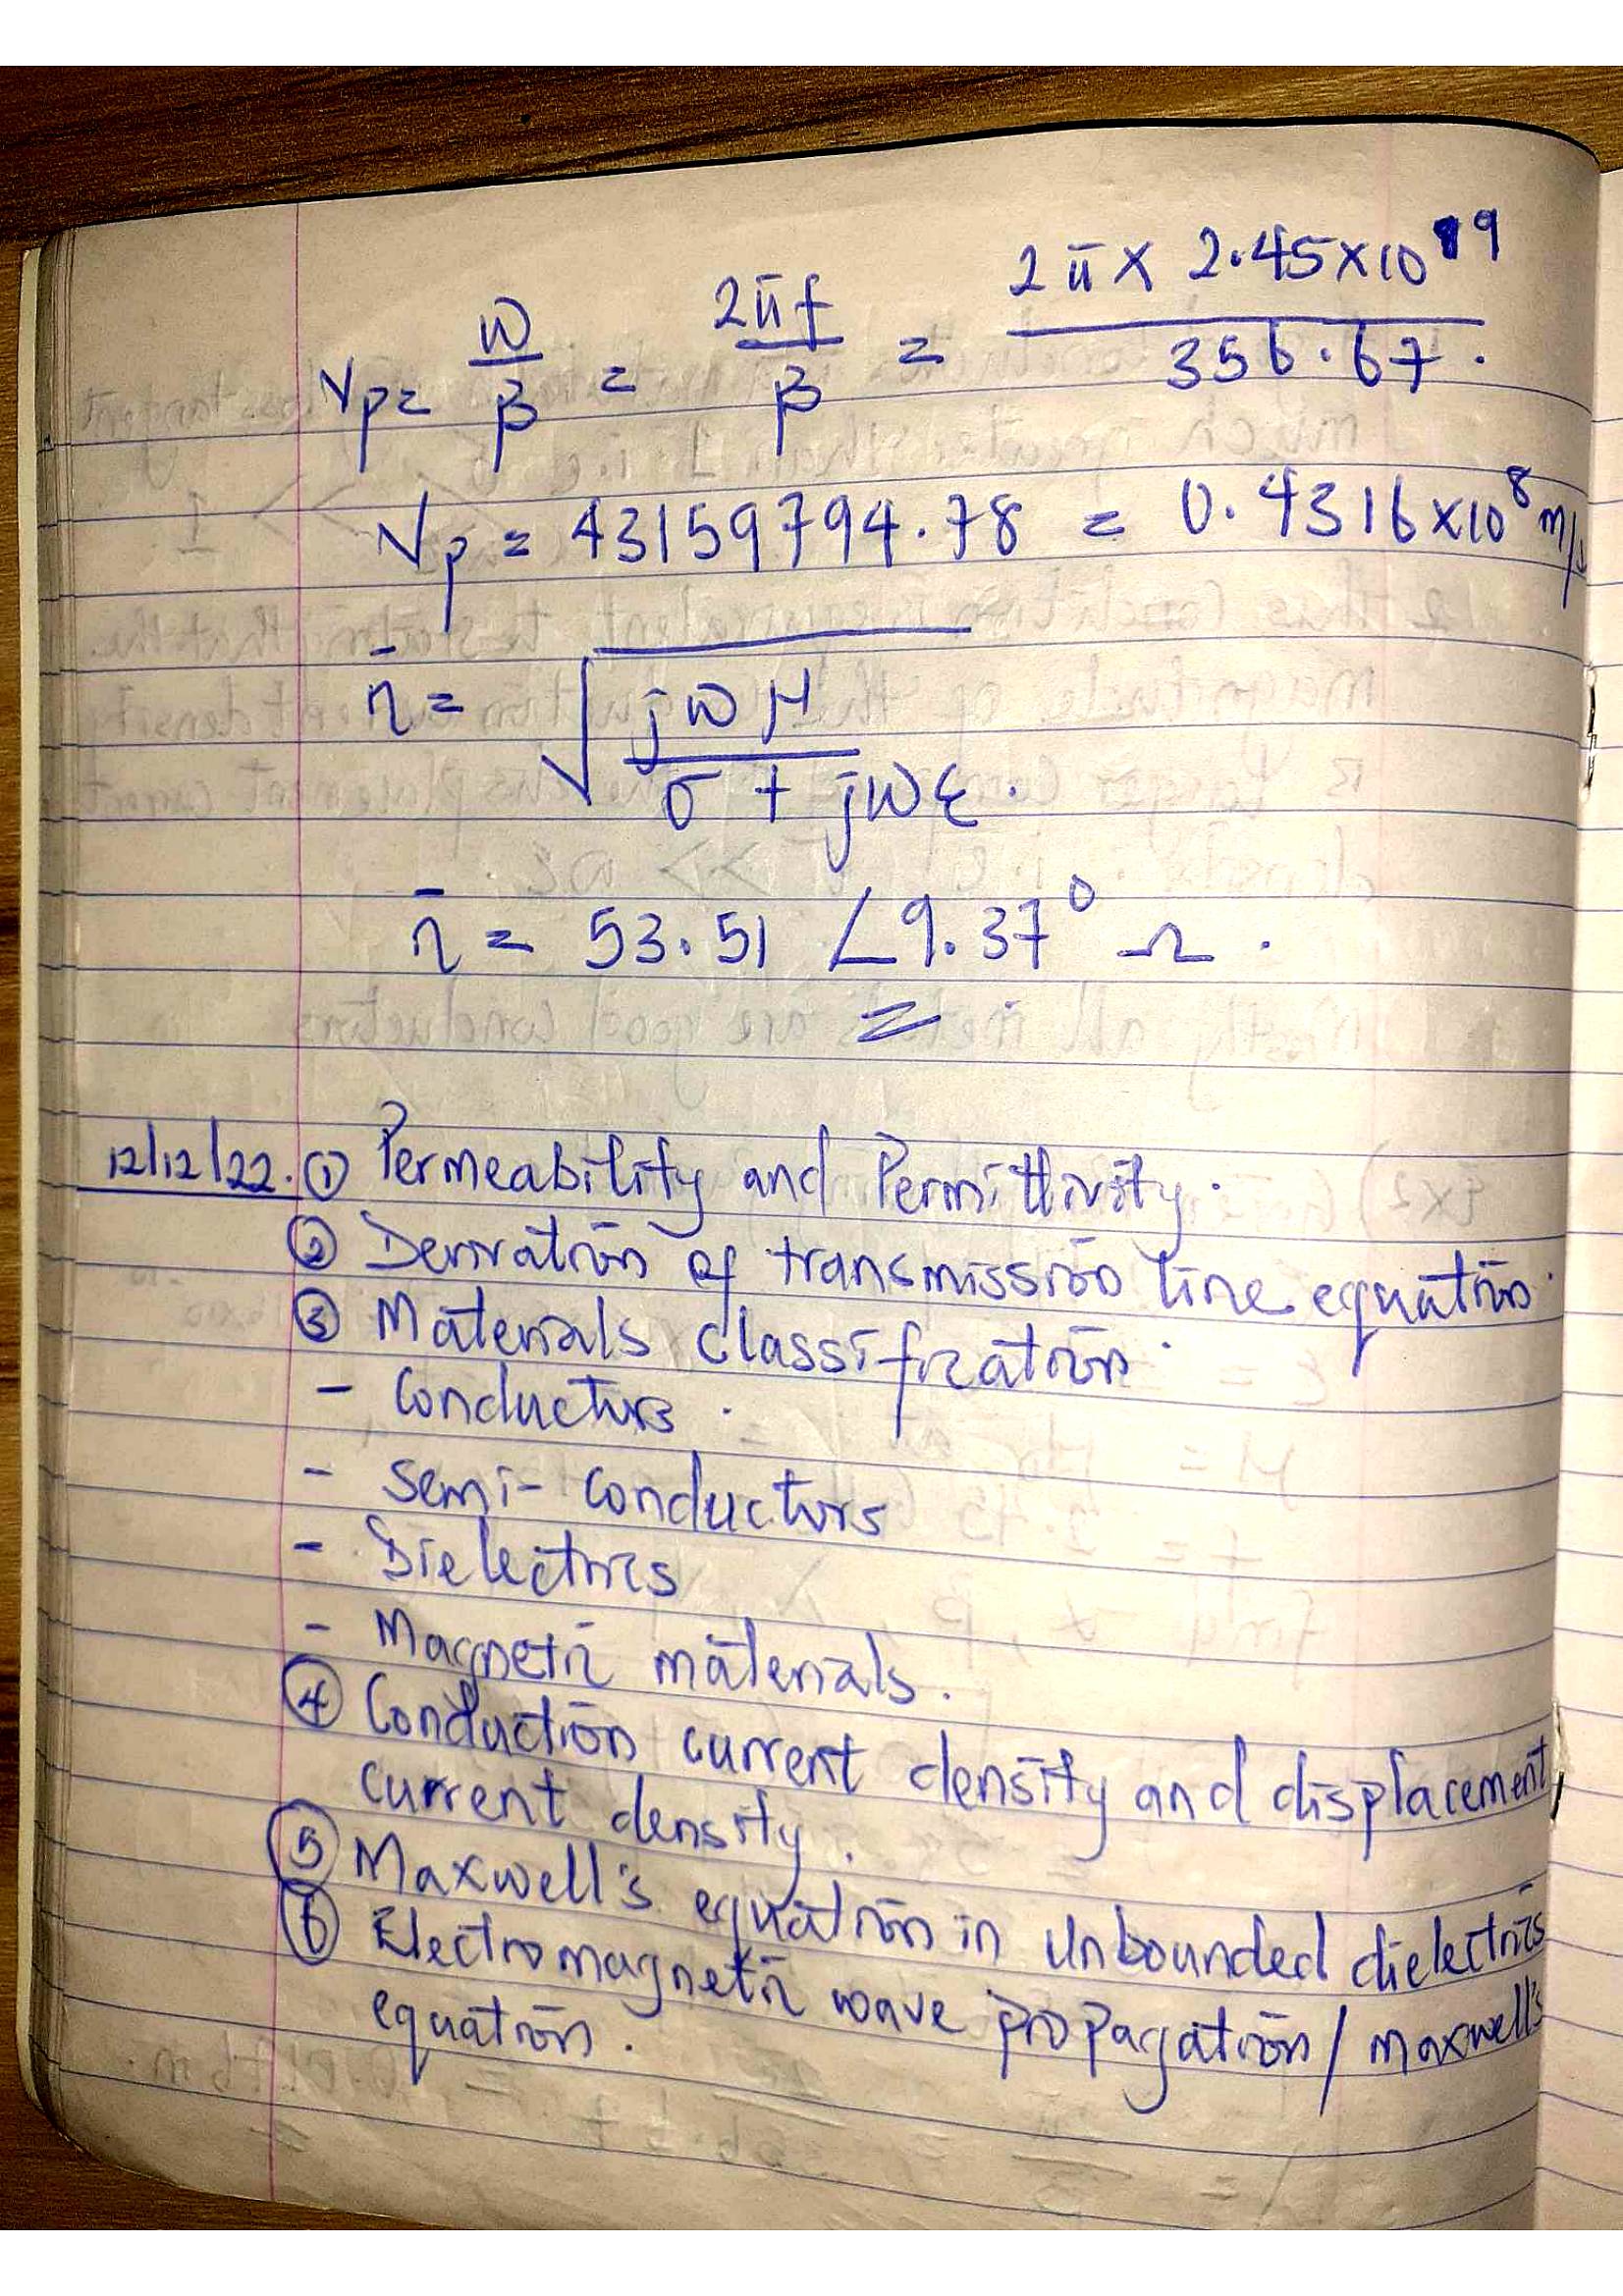 Vp = ω/β = 2πf/β = 2π × 2.45×10^9 / 356.67.
Vp = 43159794.78 = 0.4316×10^8 m/s
η̄ = √(jωμ / σ + jωε.
η̄ = 53.51 ∠9.37° Ω.
12/12/22. ① Permeability and Permittivity.
② Derivation of transmission line equation.
③ Materials classification.
- Conductors.
- Semi-conductors
- Dielectrics
- Magnetic materials.
④ Conduction current density and displacement
current density.
⑤ Maxwell's equation in unbounded dielectrics
⑥ Electromagnetic wave propagation / maxwell's
equation.